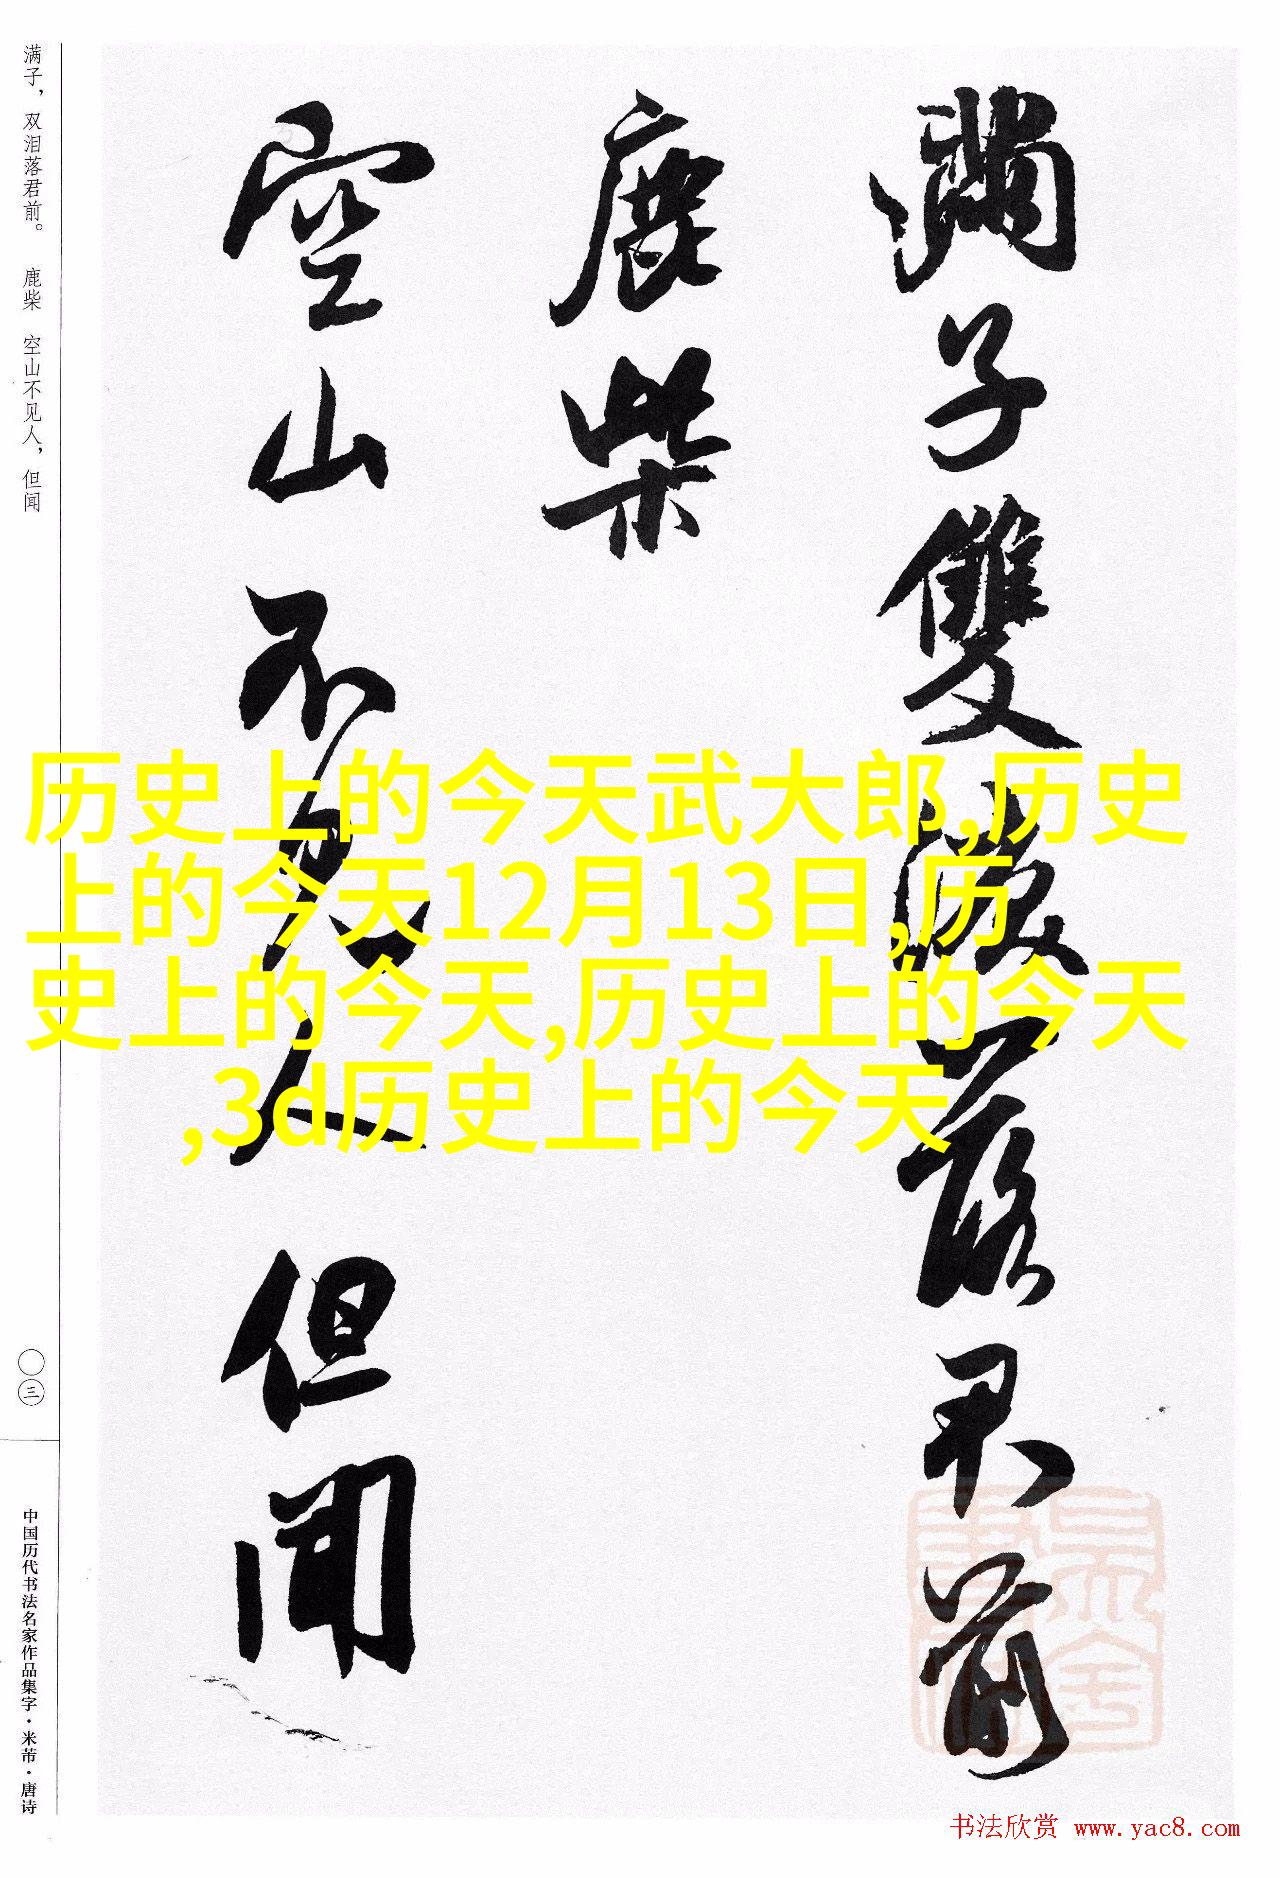 滿子雙淚落君前
鹿柴
空山不見人但聞
满子，双泪落君前。 鹿柴 空山不见人，但闻
〇三
中国历代书法名家作品集字·米芾·唐诗
历史上的今天武大郎,历史
上的今天12月13日,历
史上的今天,历史上的今天
,3d历史上的今天
书法欣赏 www.yac8.com